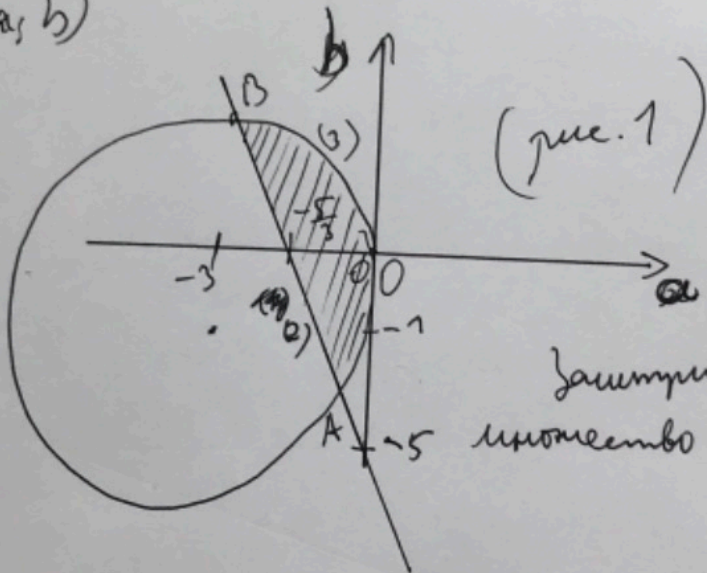 a, b)
b
B
(3)
(рис. 1)
-5/3
-3
O
a
(2)
-1
Заштри
A
-5 множество